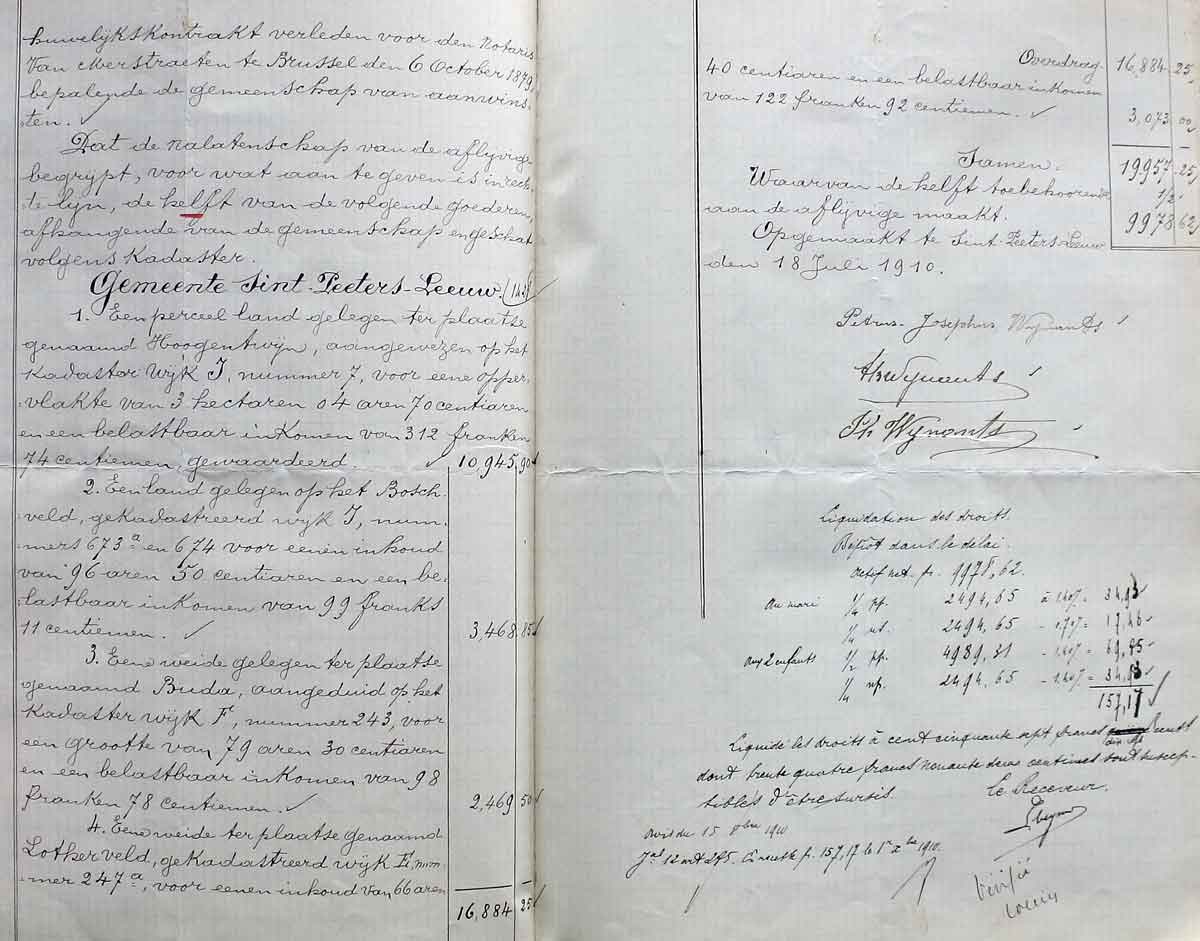 huwelijkskontrakt verleden voor den Notaris
Van Merstraeten te Brussel den 6 October 1879,
bepalende de gemeenschap van aanwins-
ten.
Dat de nalatenschap van de aflijvige
begrypt, voor wat aan te geven is in rech-
te lijn, de helft van de volgende goederen,
afhangende van de gemeenschap en geschat
volgens Kadaster.
Gemeente Sint-Peeters-Leeuw.
1. Een perceel land gelegen ter plaatse
genaamd Hoogentwijn, aangewezen op het
Kadaster Wijk I, nummer 7, voor eene opper-
vlakte van 3 hectaren 04 aren 70 centiaren
en een belastbaar inkomen van 312 franken
74 centiemen, gewaardeerd. 10,945,90
2. Een land gelegen op het Bosch-
veld, gekadastreerd wijk I, num-
mers 673a en 674 voor eenen inhoud
van 96 aren 50 centiaren en een be-
lastbaar inkomen van 99 franks
11 centiemen. 3,468,85
3. Eene weide gelegen ter plaatse
genaamd Buda, aangeduid op het
Kadaster wijk F, nummer 243, voor
een grootte van 79 aren 30 centiaren
en een belastbaar inkomen van 98
franken 78 centiemen. 2,469 50
4. Eene weide ter plaatse genaamd
Lotherveld, gekadastreerd wijk F, num-
mer 247a, voor eenen inhoud van 66 aren
16,884 25
Overdrag 16,884 25
40 centiaren en een belastbaar inkomen
van 122 franken 92 centiemen. 3,073 00
Samen. 19957 25
Waarvan de helft toebehoorende 1/2
aan de aflijvige maakt. 9978 62
Opgemaakt te Sint-Peeters-Leeuw
den 18 Juli 1910.
Petrus-Josephus Wynants
Wynants
Th Wynants
Liquidation des droits.
Dépôt dans le délai.
Actif net fr. 9978,62.
Au mari 1/4 pp. 2494,65 à 1.40% = 34,93
1/4 us. 2494,65 - 17,46
Aux 2 enfants 1/2 pp. 4989,31 - 1.40% = 69,85
1/4 np. 2494,65 - 1.40% = 34,93
157,17
Liquidé les droits à cent cinquante sept francs
dont trente quatre francs nonante deux centimes sont suscep-
tibles d'être sursis. Le Receveur.
Avis du 15 1910
157,17 le 1910.
Vérifié